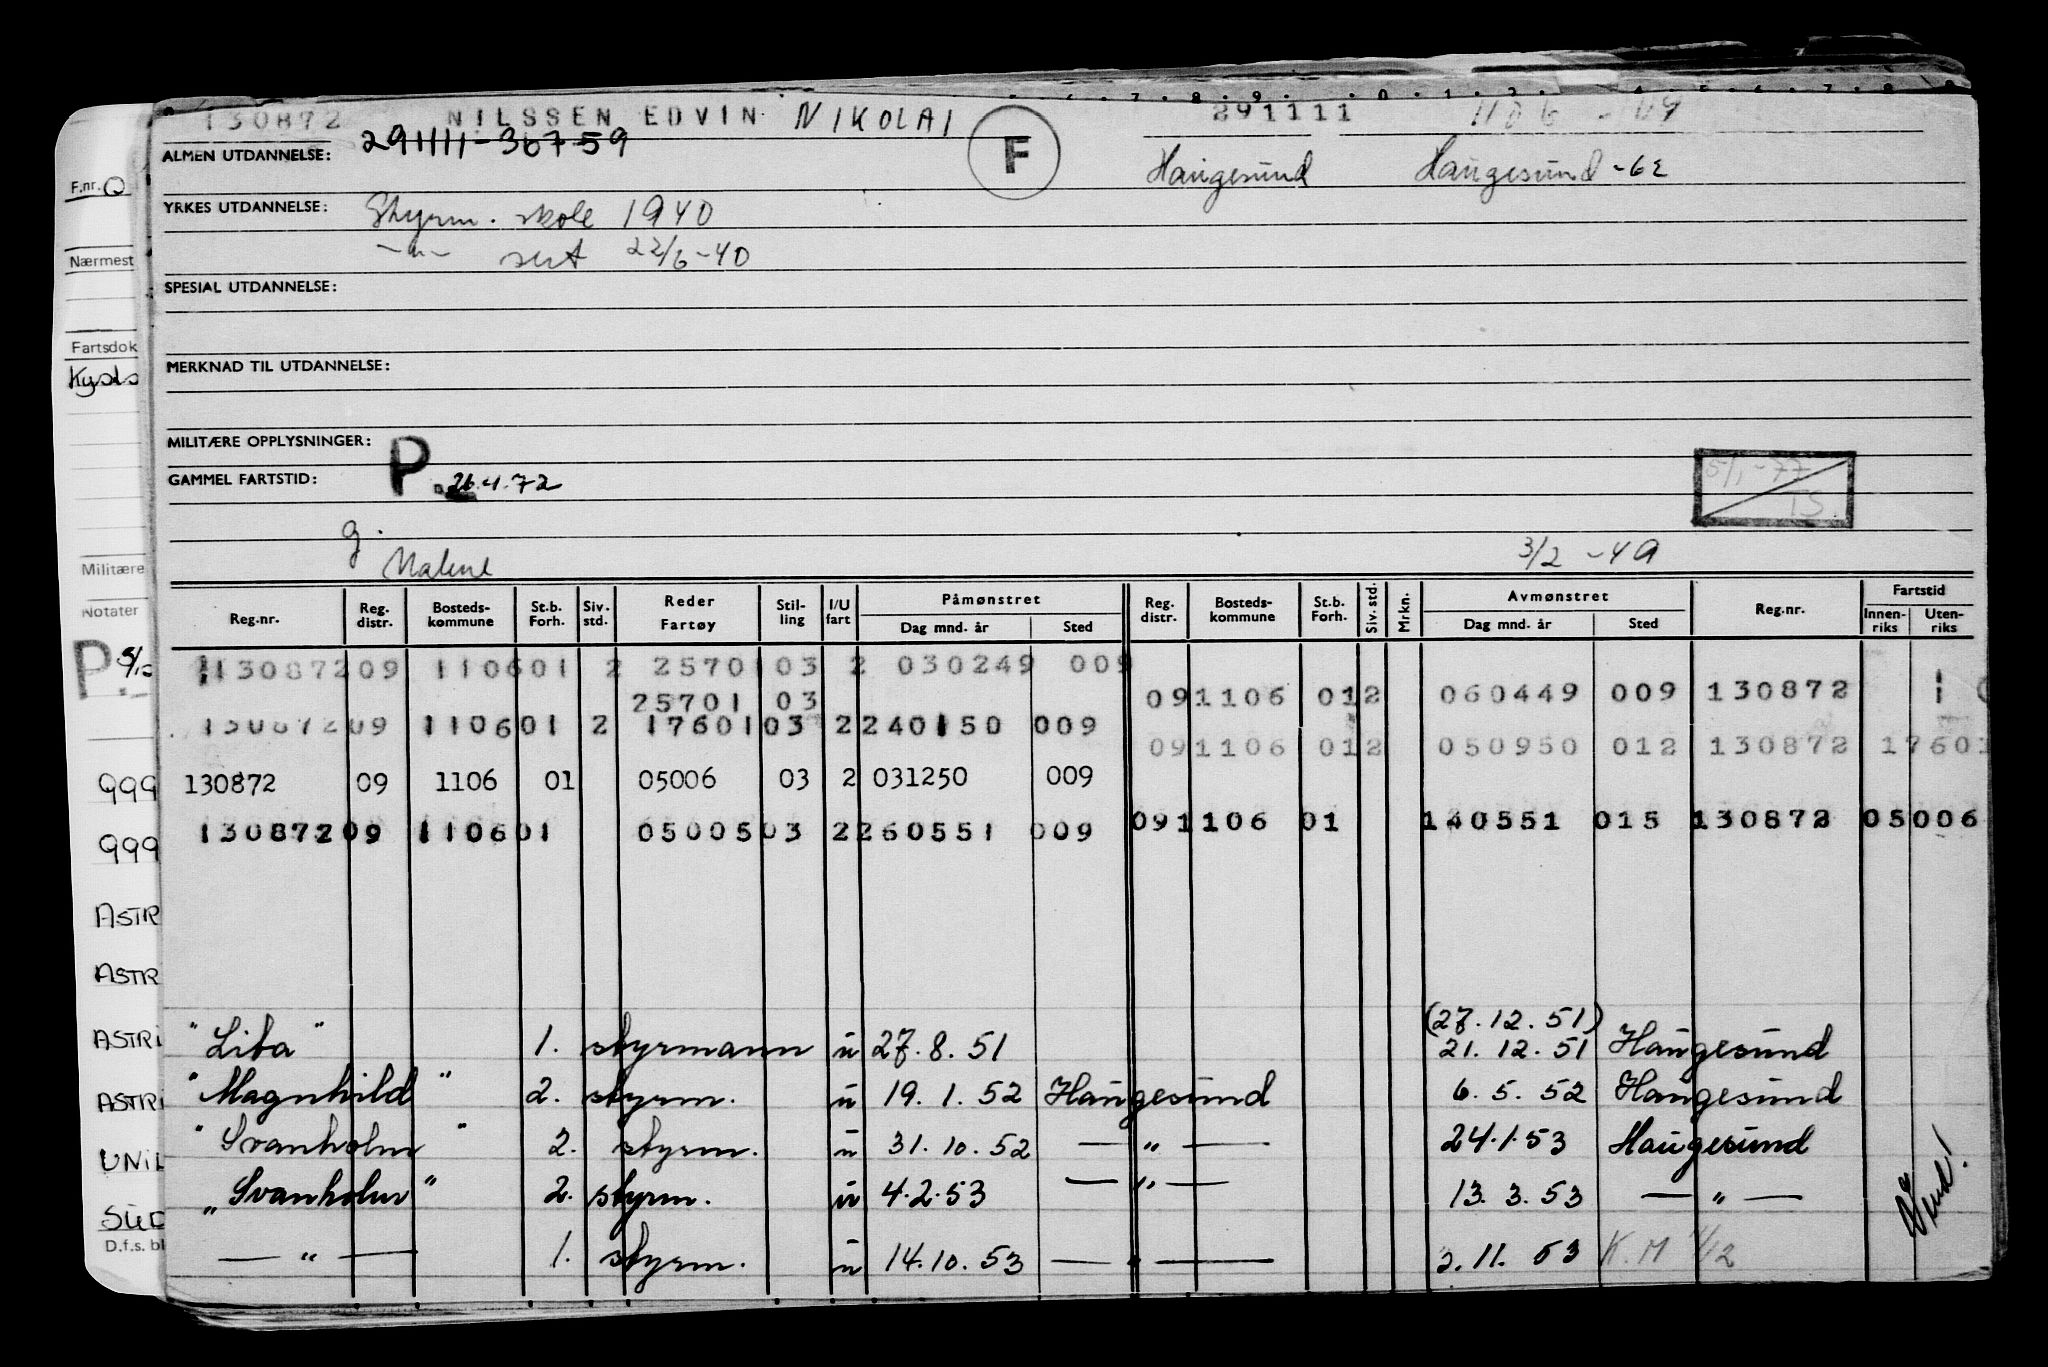 130872 NILSSEN EDVIN NIKOLAI F 291111 1106 - 04
ALMEN UTDANNELSE: 291111-36759 Haugesund Haugesund -62
YRKES UTDANNELSE: Styrm. skole 1940
—"— sert 22/6-40
SPESIAL UTDANNELSE:
MERKNAD TIL UTDANNELSE:
MILITÆRE OPPLYSNINGER:
GAMMEL FARTSTID: P. 26.4.72 5/1-77 TS.
g. Malene 3/2 -49
Reg.nr. Reg. distr. Bosteds-kommune St.b. Forh. Siv. std. Reder Fartøy Stil-ling I/U fart Påmønstret Dag mnd. år Sted Reg. distr. Bosteds-kommune St.b. Forh. Siv. std. Mrkn. Avmønstret Dag mnd. år Sted Reg.nr. Fartstid Innen-riks Uten-riks
130872 09 1106 01 2 25701 03 2 030249 009
25701 03 09 1106 01 2 060449 009 130872 1
130872 09 1106 01 2 17601 03 2 240150 009
09 1106 01 2 050950 012 130872 17601
130872 09 1106 01 05006 03 2 031250 009
130872 09 1106 01 05005 03 2 260551 009 09 1106 01 140551 015 130872 05006
(27.12.51)
"Lita" 1. styrmann u 27.8.51 21.12.51 Haugesund
"Magnhild" 2. styrm. u 19.1.52 Haugesund 6.5.52 Haugesund
"Svanholm" 2. styrm. u 31.10.52 —"— 24.1.53 Haugesund
"Svanholm" 2. styrm. u 4.2.53 —"— 13.3.53 —"—
—"— 1. styrm. u 14.10.53 —"— 3.11.53 K.M 4/12
Vend!
F.nr. O
Nærmest
Fartsdok
Kysts
Militære
Notater
P. 5/10
999
999
ASTR
ASTR
ASTRI
ASTRI
UNIL
D.f.s. bl